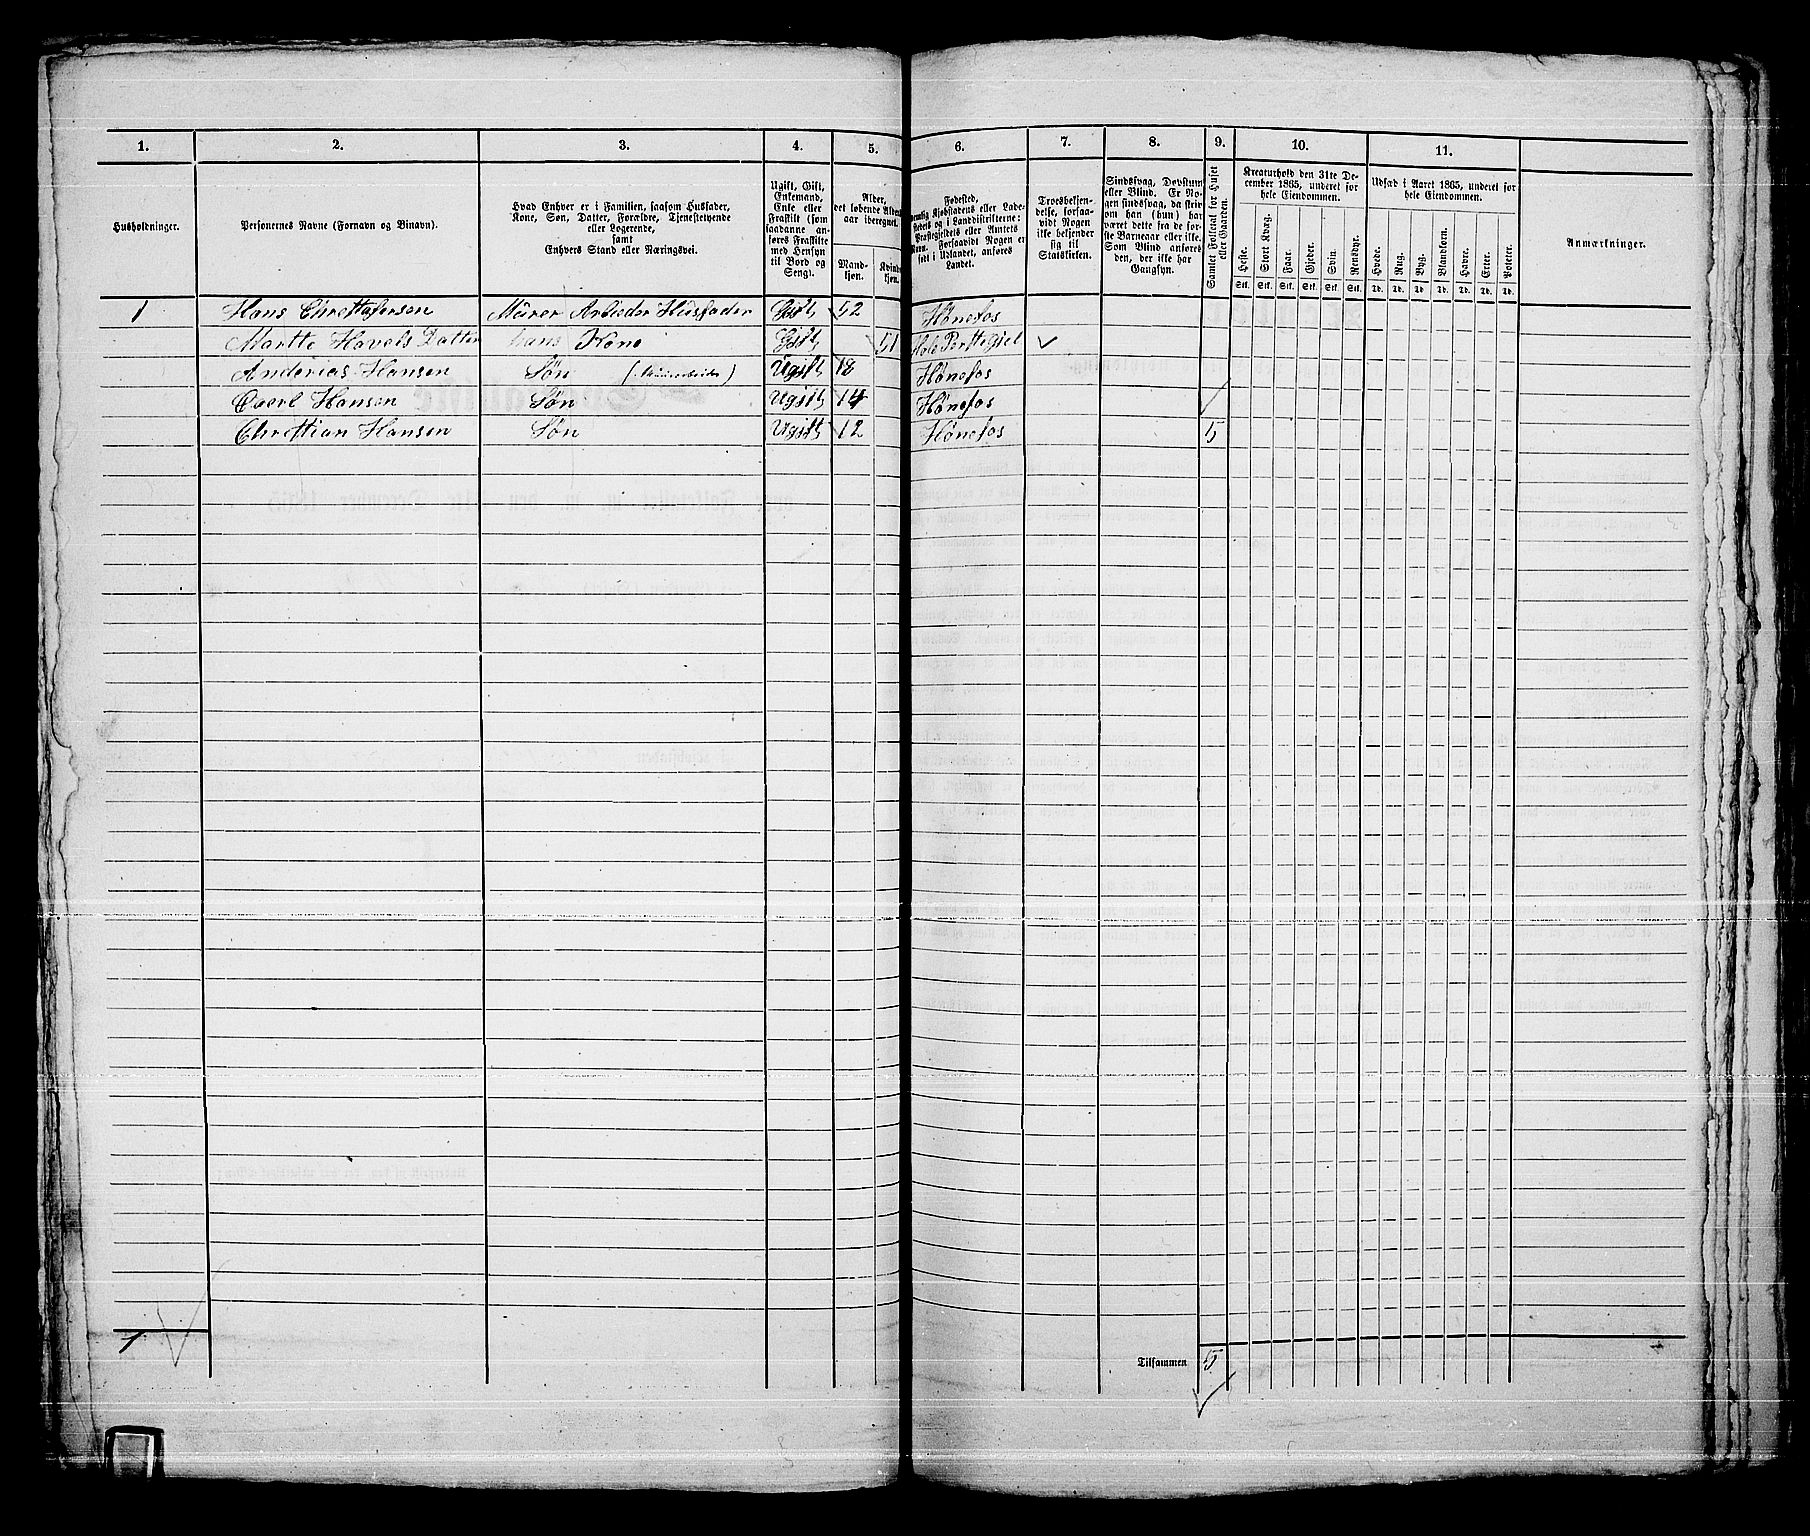 1. 2. 3. 4. 5. 6. 7. 8. 9. 10. 11.
Husholdninger.
Personernes Navne (Fornavn og Binavn).
Hvad Enhver er i Familien, saasom Husfader,
Kone, Søn, Datter, Forældre, Tjenestetyende
eller Logerende,
samt
Enhvers Stand eller Næringsvei.
Ugift, Gift,
Enkemand,
Enke eller
Fraskilt (som
saadanne an-
føres Fraskilte
med Hensyn
til Bord og
Seng).
Alder,
det løbende Alders-
aar iberegnet.
Mand-
kjøn.
Kvinde-
kjøn.
Fødested,
nemlig Kjøbstadens eller Lade-
stedets og i Landdistrikterne:
Præstegjeldets eller Amtets
Navn. Forsaavidt Nogen er
født i Udlandet, anføres
Landet.
Troesbekjen-
delse, forsaa-
vidt Nogen
ikke bekjender
sig til
Statskirken.
Sindssvag, Døvstum
eller Blind. Er No-
gen sindssvag, da skriv
om han (hun) har
været dette fra de før-
ste Barneaar eller ikke.
Som Blind anføres
den, der ikke har
Gangsyn.
Samlet Folketal for Huset
eller Gaarden.
Kreaturhold den 31te De-
cember 1865, underet for
hele Eiendommen.
Heste. Stort Kvæg. Faar. Gjeder. Svin. Rensdyr.
Stk. Stk. Stk. Stk. Stk. Stk.
Udsæd i Aaret 1865, underet for
hele Eiendommen.
Hvede. Rug. Byg. Blandkorn. Havre. Erter. Poteter.
Td. Td. Td. Td. Td. Td. Td.
Anmærkninger.
1 Hans Chrettofersen Mürer Arbieder Husfader Gift 52 Hønefos
Marthe Havels Datter hans Kone Gift 51 Hole Perttegiel
Anderias Hansen Søn (Mürarbeider) Ugift 18 Hønefos
Evert Hansen Søn Ugift 14 Hønefos
Chrettian Hansen Søn Ugift 12 Hønefos 5
1 Tilsammen 5